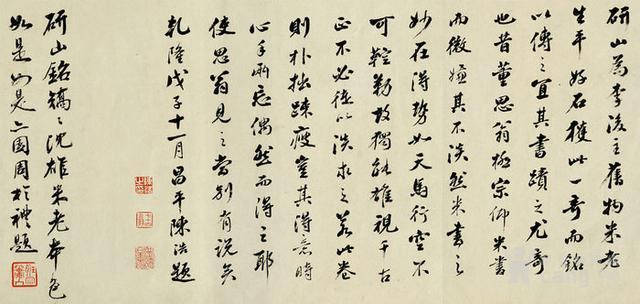 研山為李後主舊物米老
生平好石獲此一奇而銘
以傳之宜其書蹟之尤奇
也昔董思翁極宗仰米書
而微嫌其不淡然米書之
妙在得勢如天馬行空不
可鞚勒故獨能雄視千古
正不必徒以淡求之若此卷
則朴拙疎瘦豈其得意時
心手兩忘偶然而得之耶
使思翁見之當別有說矣
乾隆戊子十一月昌平陳浩題
研山銘 沈雄米老本色
如是如是亦園周於禮題